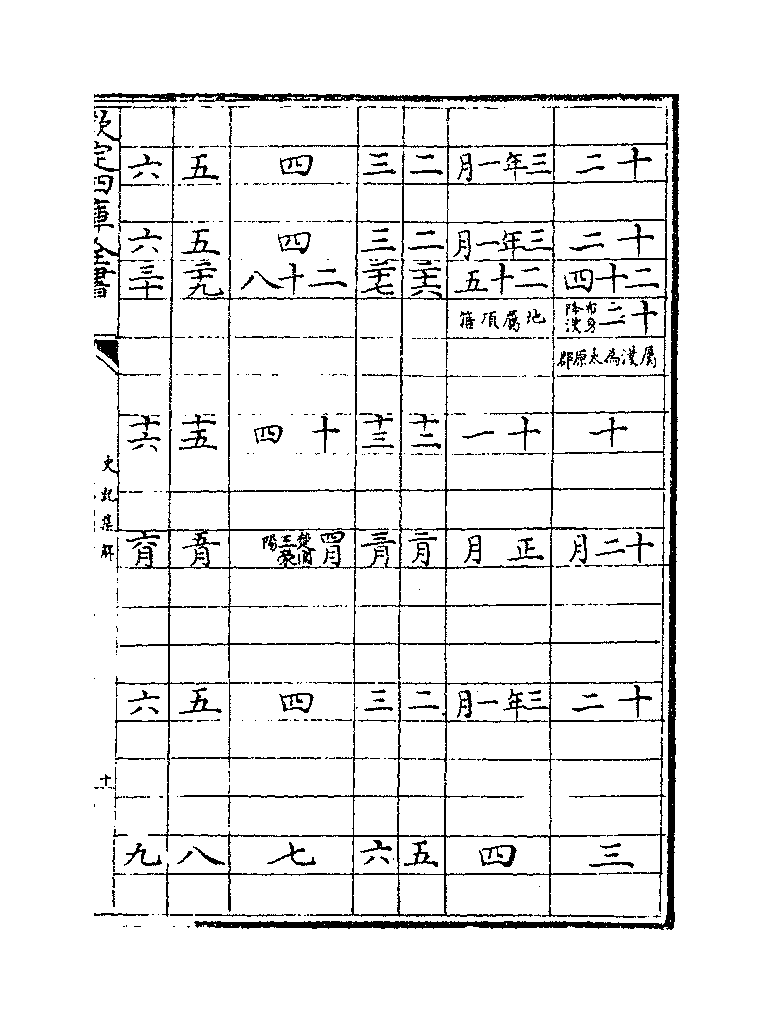 十二
十二
二十四
十二 布身降漢
屬漢為太原郡
十
十二月
十二
三
三年一月
三年一月
二十五
地屬項籍
十一
正月
三年一月
四
二
二
二十六
十二
二月
二
五
三
三
二十七
十三
三月
三
六
四
四
二十八
十四
四月 楚圍王滎陽
四
七
五
五
二十九
十五
五月
五
八
六
六
三十
十六
六月
六
九
欽定四庫全書
史記集解